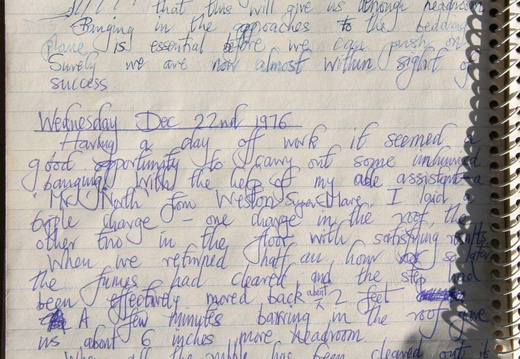 that this will give us strong headroom
Banging in the approaches to the bedding
plane is essential before we can push on.
Surely we are now almost within sight of
success
Wednesday Dec 22nd 1976
Having a day off work it seemed a
good opportunity to carry out some unhurried
banging with the help of my able assistant - a
"Mr North" from Weston Super Mare. I laid a
triple charge - one charge in the roof, the
other two in the floor with satisfying results.
When we returned half an hour or so later
the fumes had cleared and the step had
been effectively moved back about 2 feet
A few minutes barring in the roof gave
us about 6 inches more headroom.
When all the rubble has been cleared out it